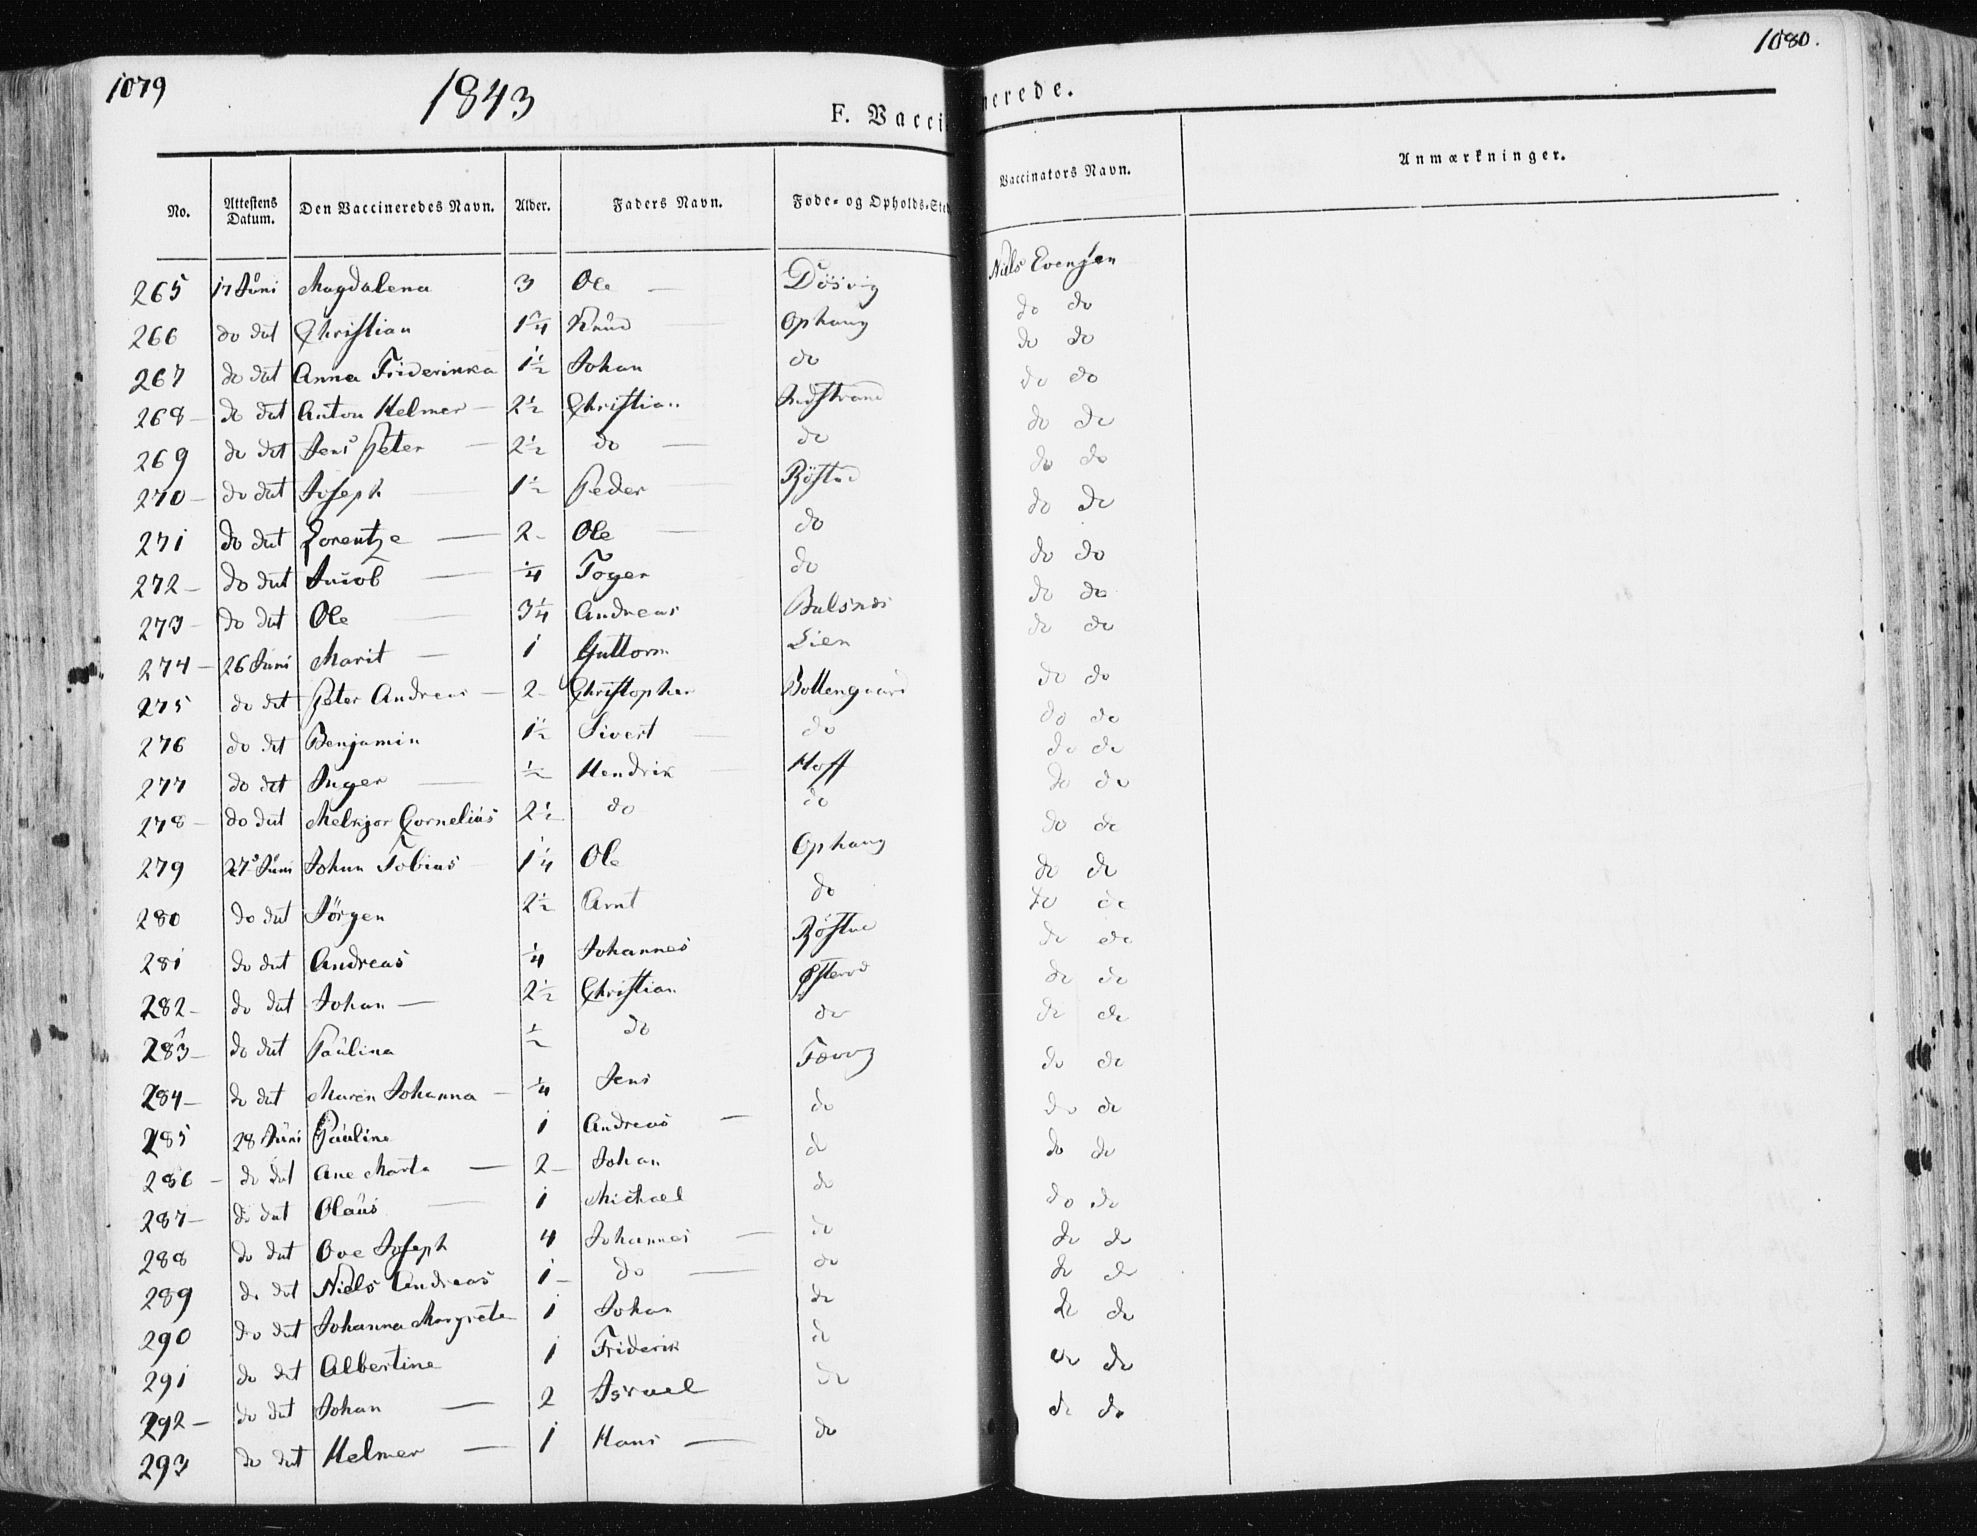 1079
1843
F. Vacci
nerede.
1080.
No. Attestens Datum. Den Vaccineredes Navn. Alder. Faders Navn. Føde- og Opholds-Sted Vaccinators Navn. Anmærkninger.
265 17 Juni Magdalena 3 Ole — Niels Evensen
266 do dat Christian Knud Ophaug do do
267 do dat Anna Friderikka 1½ Johan do do do
268 - do dat Anton Helmer - 2½ Christian Indstrand do do
269 do dat Jens Peter - 2½ do - do do do
270 - do dat Joseph 1½ Peder Røstad do do
271 do dat Lorentze — 2 - Ole — do do do
272 - do dat Jacob — ¼ Toger do do do
273 - do dat Ole 3¼ Andreas do do
274 - 26 Juni Marit - 1 Guttorm Lien do do
275 do dat Peter Andreas - 2 - Christopher Bottengaard do do
276 do dat Benjamin 1½ Sivert do do do
277 do dat Inger — ½ Hendrik Hoff do do
278 - do dat Melkjor Cornelius 2½ do do do do
279 27 Juni Johan Tobias 1¼ Ole Ophaug do do
280 do dat Jörgen 2½ Arnt do do do
281 do dat Andreas ¼ Johannes Røstad do do
282 - do dat Johan — 2½ Christian Østeraad do do
283 - do dat Paulina ½ do do do do
284 - do dat Maren Johanna - ¼ Jens do do
285 28 Juni Pauline 1 Andreas — do do do
286 - do dat Ane Marta — 2 - Johan do do do
287 - do dat Olaus 1 Michael do do do
288 do dat Ove Joseph 4 Johannes — do do do
289 do dat Niels Andreas 1 - do — do do do
290 do dat Johanna Margrete 1 Johan do do do
291 do dat Albertine 1 Friderik do do do
292 - do dat Johan — 2 Israel do do do
293 do dat Helmer — 1 Hans — do do do